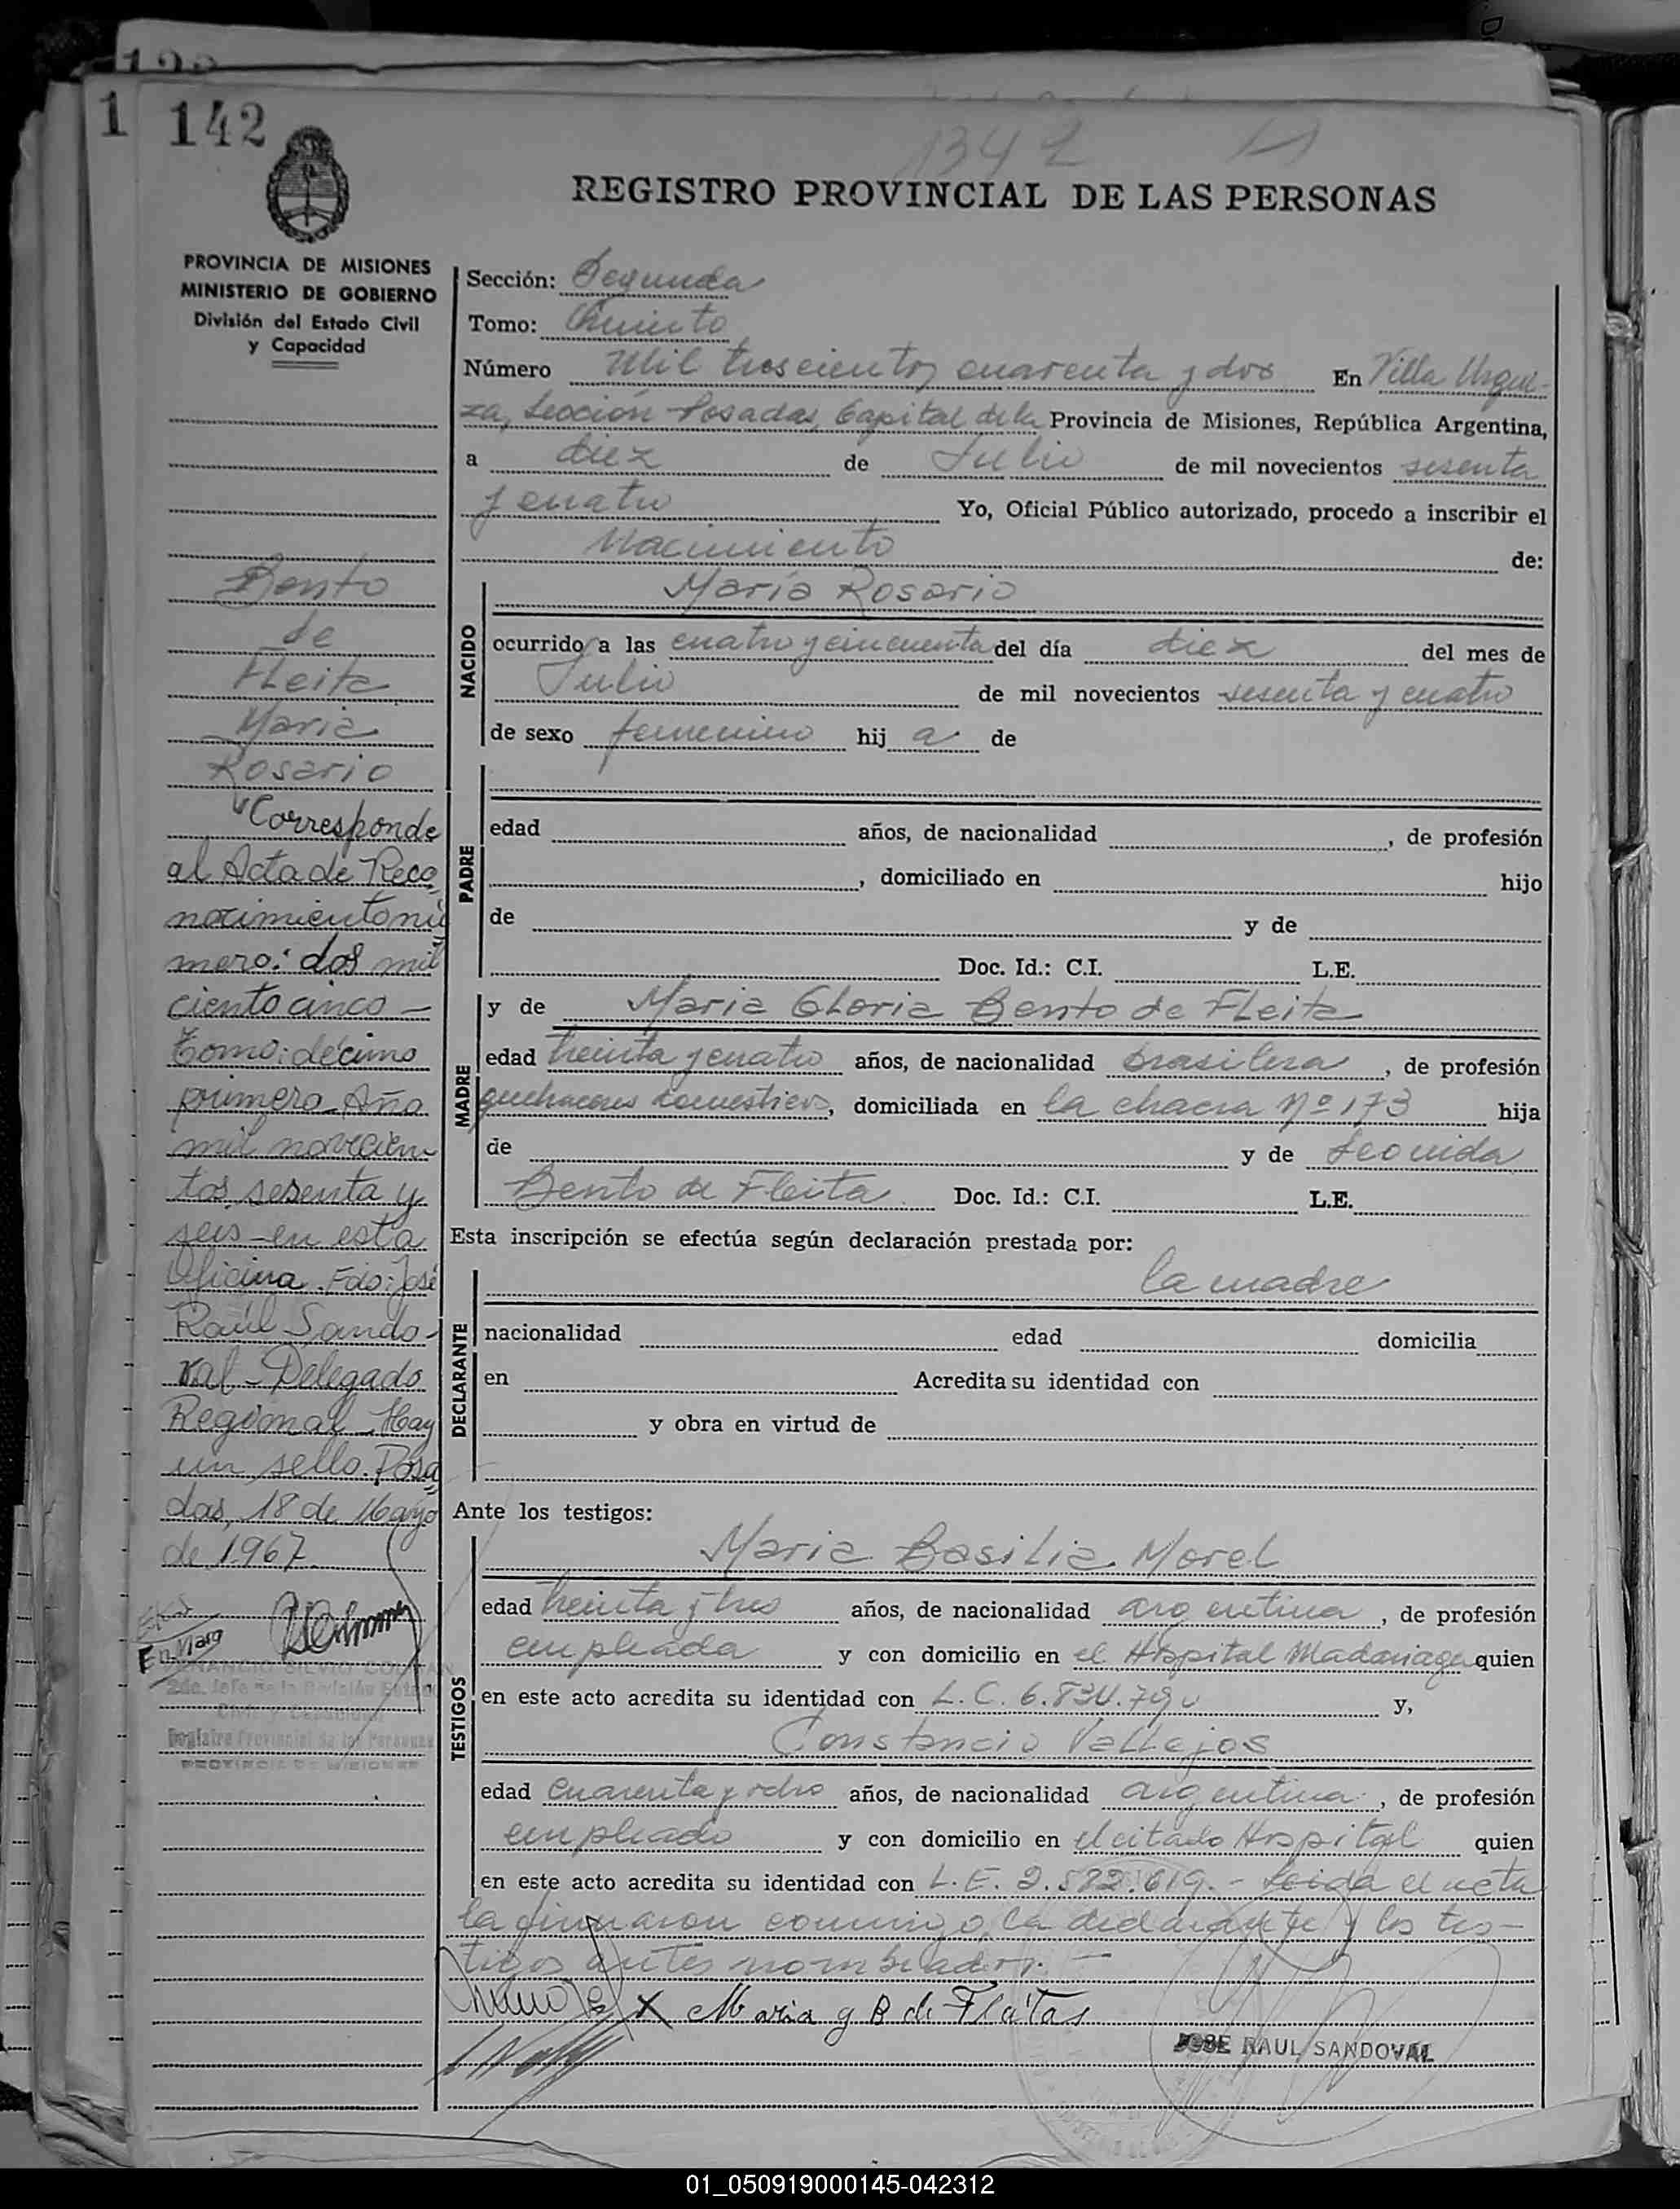 1 142
1342
REGISTRO PROVINCIAL DE LAS PERSONAS
PROVINCIA DE MISIONES
MINISTERIO DE GOBIERNO
División del Estado Civil
y Capacidad
Bento
de
Fleita
Maria
Rosario
"Corresponde
al Acta de Reco
nocimiento nú
mero: dos mil
ciento cinco –
Tomo: décimo
primero – Año
mil novecien
tos sesenta y
seis – en esta
Oficina. Fdo: José
Raúl Sando-
val – Delegado
Regional – Hay
un sello. Posa
das, 18 de Mayo
de 1967.
En Marg
2do. Jefe de la División Estado
Civil y Capacidad
Registro Provincial de las Personas
PROVINCIA DE MISIONES
Sección: Segunda
Tomo: Quinto
Número Mil trescientos cuarenta y dos En Villa Urqui-
za, Sección Posadas, Capital de la Provincia de Misiones, República Argentina,
a diez de Julio de mil novecientos sesenta
y cuatro Yo, Oficial Público autorizado, procedo a inscribir el
Nacimiento de:
NACIDO
María Rosario
ocurrido a las cuatro y cincuenta del día diez del mes de
Julio de mil novecientos sesenta y cuatro
de sexo femenino hij a de
PADRE
edad años, de nacionalidad , de profesión
, domiciliado en hijo
de y de
Doc. Id.: C.I. L.E.
MADRE
y de Maria Gloria Bento de Fleita
edad treinta y cuatro años, de nacionalidad brasilera , de profesión
quehaceres domesticos, domiciliada en la chacra Nº 173 hija
de y de
Bento de Fleita Doc. Id.: C.I. L.E.
Esta inscripción se efectúa según declaración prestada por:
DECLARANTE
la madre
nacionalidad edad domicilia
en Acredita su identidad con
y obra en virtud de
Ante los testigos:
TESTIGOS
Maria Basilia Morel
edad treinta y tres años, de nacionalidad argentina , de profesión
empleada y con domicilio en el Hospital Madariaga quien
en este acto acredita su identidad con L.C. y,
Constancio Vallejos
edad cuarenta y ocho años, de nacionalidad argentina , de profesión
empleado y con domicilio en el citado Hospital quien
en este acto acredita su identidad con L.E. 2.582.619. – Leida el acta
la firmaron conmigo, la declarante y los tes-
tigos antes nombrados. –
X Maria g B de Fleitas
JOSE RAUL SANDOVAL
01_050919000145-042312